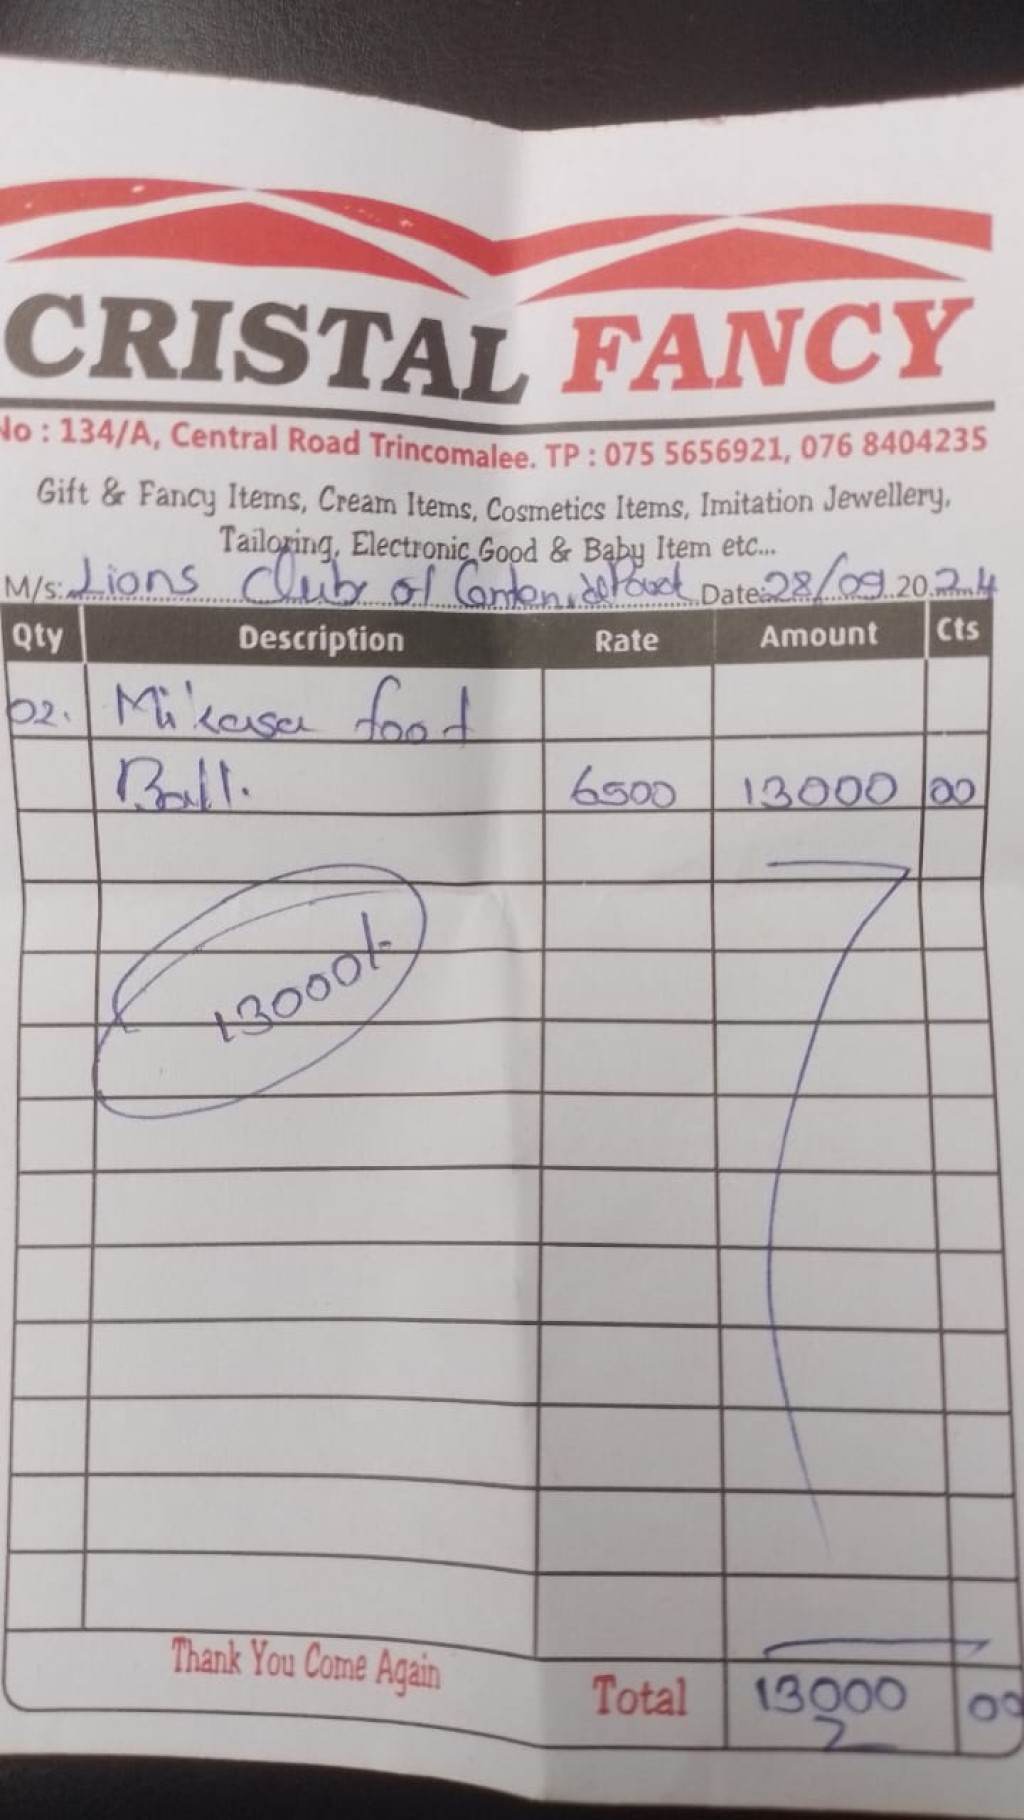 CRISTAL FANCY
No : 134/A, Central Road Trincomalee. TP : 075 5656921, 076 8404235
Gift & Fancy Items, Cream Items, Cosmetics Items, Imitation Jewellery,
Tailoring, Electronic Good & Baby Item etc...
M/s: Lions Club of Date: 28/09 2024
Qty Description Rate Amount Cts
02. Mikasa foot
Ball. 6500 13000 00
13000/-
Thank You Come Again
Total 13000 00